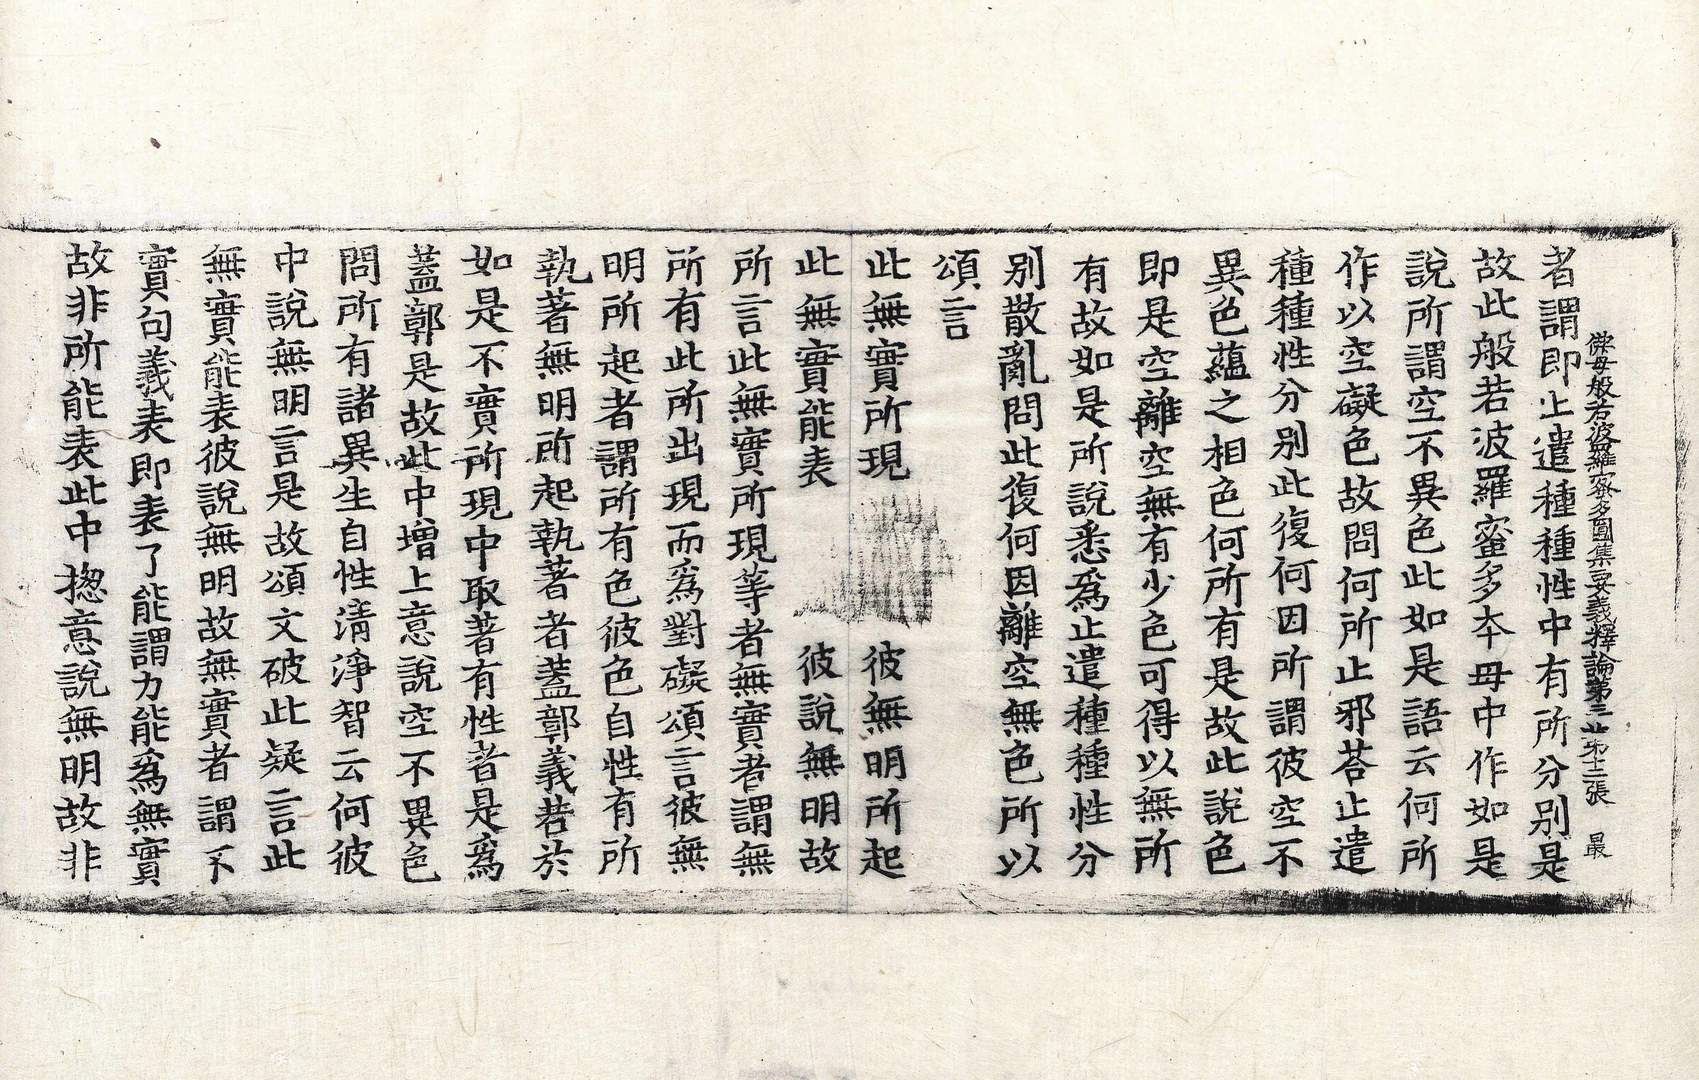 佛母般若波羅蜜多圓集要義釋論第三 第十二張 最
者謂即止遣種種性中有所分別是
故此般若波羅蜜多本母中作如是
說所謂空不異色此如是語云何所
作以空礙色故問何所止邪荅止遣
種種性分別此復何因所謂彼空不
異色蘊之相色何所有是故此說色
即是空離空無有少色可得以無所
有故如是所說悉為止遣種種性分
別散亂問此復何因離空無色所以
頌言
此無實所現 彼無明所起
此無實能表 彼說無明故
所言此無實所現等者無實者謂無
所有此所出現而為對礙頌言彼無
明所起者謂所有色彼色自性有所
執著無明所起執著者蓋鄣義若於
如是不實所現中取著有性者是為
蓋鄣是故此中增上意說空不異色
問所有諸異生自性清淨智云何彼
中說無明言是故頌文破此疑言此
無實能表彼說無明故無實者謂不
實句義表即表了能謂力能為無實
故非所能表此中揔意說無明故非